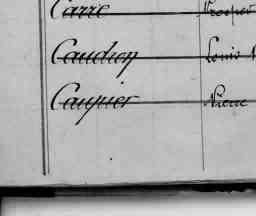 Carré Prosper
Caudron Louis
Cauquier Pierre